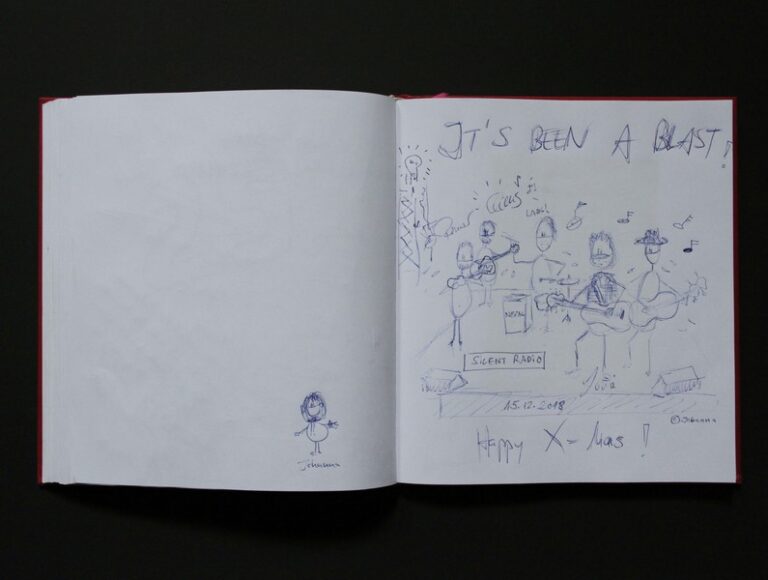 Johanna
IT'S BEEN A BLAST!
SILENT RADIO
15.12.2018
© Johanna
Happy X-Mas!